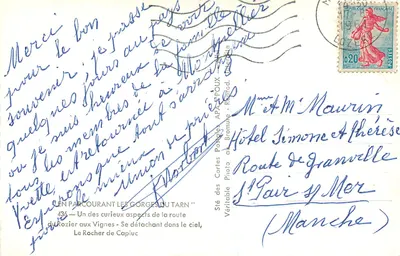 Merci
pour le bon
souvenir, je passe
quelques jours au pays
ou je suis heureuse de voir
tous les membres de la famille
Yvette est retournée à Montpellier
Espérons que tout s'arrangera
Union de prières
"EN PARCOURANT LES GORGES DU TARN"
Un des curieux aspects de la route
du Rozier aux Vignes - Se détachant dans le ciel,
Le Rocher de Capluc
Sté des Cartes Postales APA-POUX
Véritable Photo au Bromure
Mme et Mr Maurin
Hôtel Simone et Thérèse
Route de Granville
St Pair s/ Mer
(Manche)
0,20